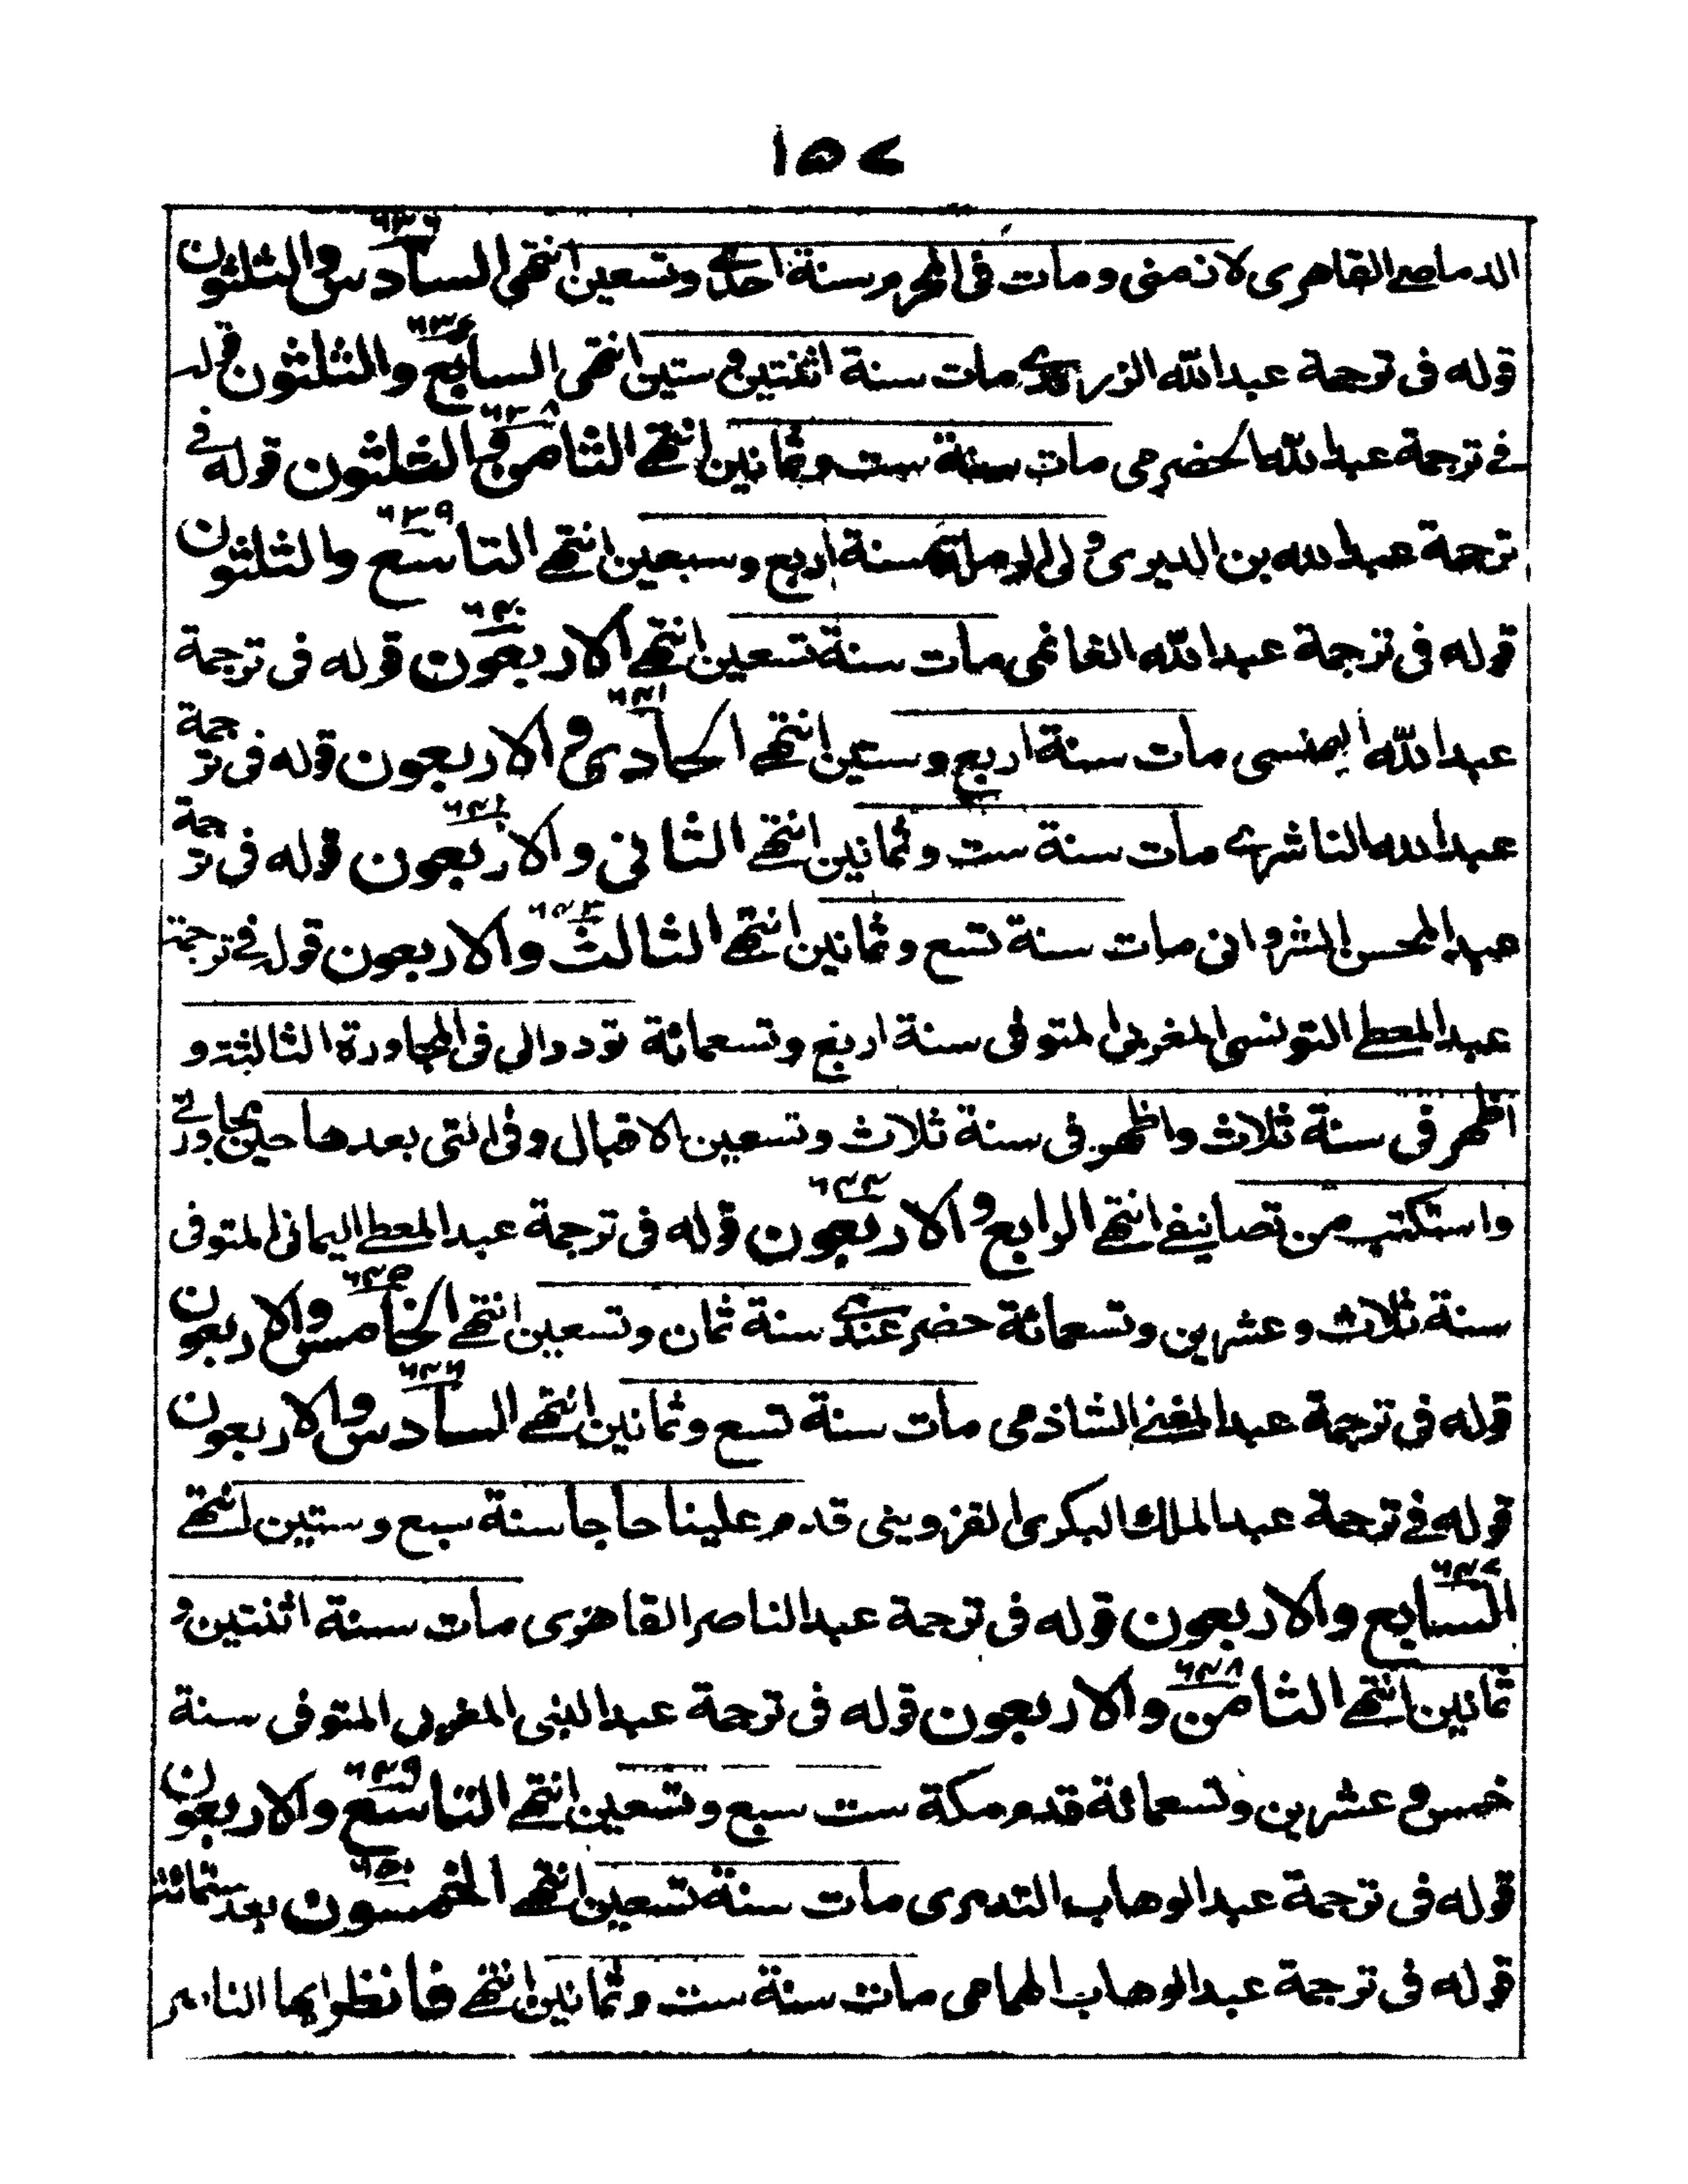 ١٥٧
٦٣٦
الدماصي القاهرى لازمنى ومات فى المحرم سنة احدى وتسعين انتهى السادس والثلثون
٦٣٧
قوله فى ترجمة عبدالله الزرندى مات سنة اثنتين و ستين انتهى السابع والثلثون قوله
٦٣٨
فى ترجمة عبدالله الحضرمى مات سنة ست وثمانين انتهى الثامن والثلثون قوله فى
٦٣٩
ترجمة عبدالله بن الديرى ولى الرملة سنة اربع وسبعين انتهى التاسع والثلثون
٦٤٠
قوله فى ترجمة عبدالله الغانمى مات سنة تسعين انتهى الاربعون قوله فى ترجمة
٦٤١
عبدالله مات سنة اربع وستين انتهى الحادى والاربعون قوله فى ترجمة
٦٤٢
عبدالله الناشرى مات سنة ست وثمانين انتهى الثانى والاربعون قوله فى ترجمة
٦٤٣
عبدالمحسن الشروانى مات سنة تسع وثمانين انتهى الثالث والاربعون قوله فى ترجمة
عبدالمعطى التونسى المغربى المتوفى سنة اربع وتسعمائة تودد الى فى المجاورة الثالثة و
اظهر فى سنة ثلاث واظهر فى سنة ثلاث وتسعين الاقبال وفى التى بعدها حين مجاورتى
٦٤٤
واستكتب من تصانيفى انتهى الرابع والاربعون قوله فى ترجمة عبدالمعطى اليمانى المتوفى
٦٤٥
سنة ثلاث وعشرين وتسعمائة حضر عندى سنة ثمان وتسعين انتهى الخامس والاربعون
٦٤٦
قوله فى ترجمة عبدالمغنى الشاذمى مات سنة تسع وثمانين انتهى السادس والاربعون
قوله فى ترجمة عبدالملك البكرى القزوينى قدم علينا حاجا سنة سبع وستين انتهى
٦٤٧
السابع والاربعون قوله فى ترجمة عبدالناصر القاهرى مات سنة اثنتين و
٦٤٨
ثمانين انتهى الثامن والاربعون قوله فى ترجمة عبدالنبى المغربى المتوفى سنة
٦٤٩
خمس وعشرين وتسعمائة قدم مكة ست سبع وتسعين انتهى التاسع والاربعون
٦٥٠
قوله فى ترجمة عبدالوهاب التدمرى مات سنة تسعين انتهى الخمسون بعد ستمائة
قوله فى ترجمة عبدالوهاب الهمامى مات سنة ست وثمانين انتهى فانظر ايها الناصر